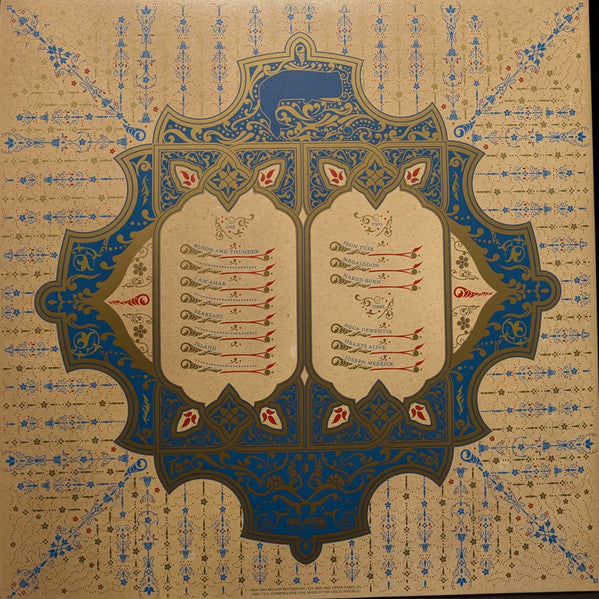 ONE
BLOOD AND THUNDER
I AM AHAB
SEABEAST
ISLAND
TWO
IRON TUSK
MEGALODON
NAKED BURN
THREE
AQUA DEMENTIA
HEARTS ALIVE
JOSEPH MERRICK
RELAPSE